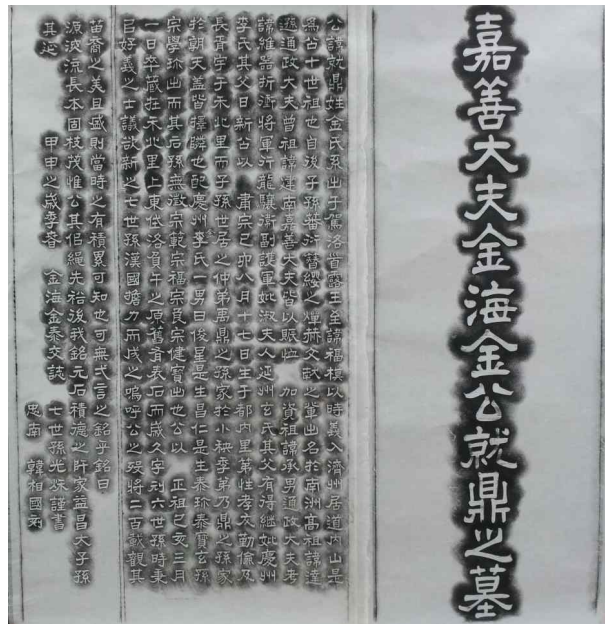 嘉善大夫金海金公就鼎之墓
公諱就鼎姓金氏系出于駕洛首露王至諱福模以時義入濟州居道內山是
爲占十世祖也自後子孫蕃衍簪纓之燀赫文武之輩出名於南洲高祖諱達
遜通政大夫曾祖諱建南嘉善大夫皆以賑恤 加資祖諱承男通政大夫考
諱維嵒折衝將軍行龍驤衛副護軍妣淑夫人延州玄氏其父有得繼妣慶州
李氏其父日新古以 肅宗己卯八月十七日生于都內里第性孝友勤儉及
長胥宇于禾北里而子孫世居之仲弟禹鼎之孫家於小秧李弟乃鼎之孫家
於朝天蓋皆擇隣也配慶州李氏一男曰俊星是生昌仁是生泰珎泰寶玄孫
宗學珎出而其后孫無徵宗範宗福宗貞宗健寶出也公以 正祖己亥三月
一日卒葬在禾北里上東低洛負午之原舊有表石而歲久字刓六世孫時秉
曰好義之士議欲新之七世孫漢國瞻力而成之嗚呼公之歿將二百載觀其
苗裔之美且盛則當時之有積累可知也可無一言之銘乎銘曰
源浚流長本固枝茂惟公其侶繩先裕後我銘元石積德之阡家益昌大子孫
其必
甲申之歲季春 金海金泰交誌
七世孫光洙謹書
思南 韓相國刻